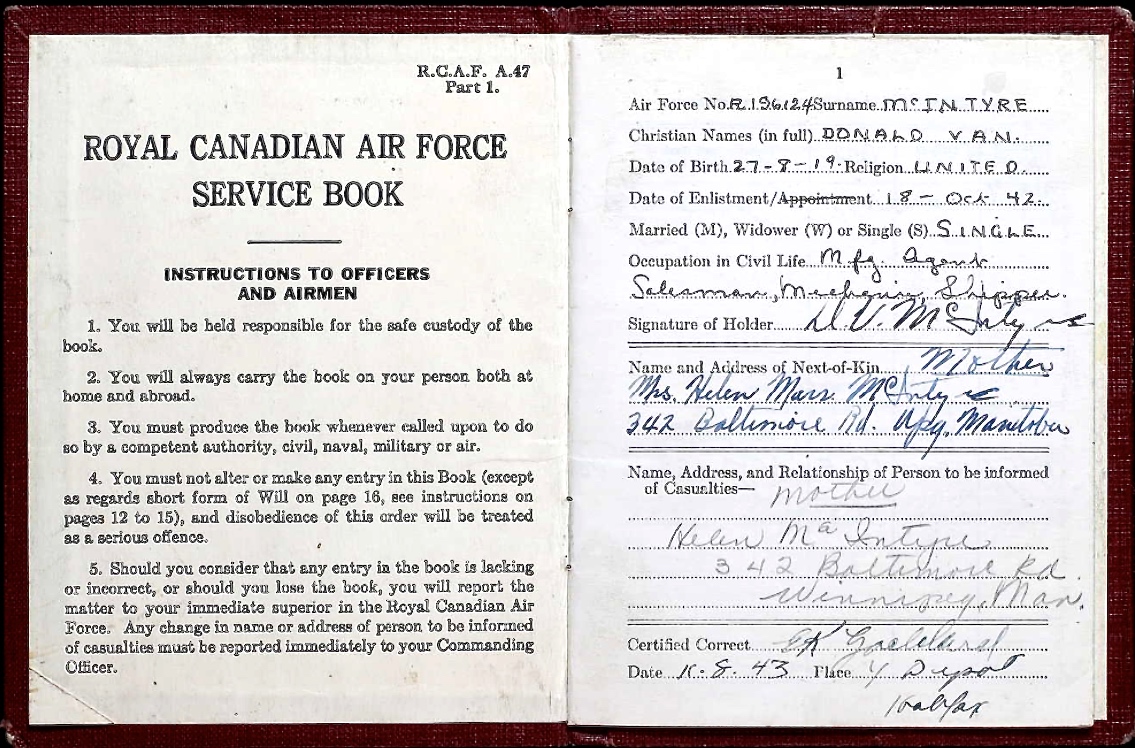 R.C.A.F. A.47
Part 1.
ROYAL CANADIAN AIR FORCE
SERVICE BOOK
INSTRUCTIONS TO OFFICERS
AND AIRMEN
1. You will be held responsible for the safe custody of the
book.
2. You will always carry the book on your person both at
home and abroad.
3. You must produce the book whenever called upon to do
so by a competent authority, civil, naval, military or air.
4. You must not alter or make any entry in this Book (except
as regards short form of Will on page 16, see instructions on
pages 12 to 15), and disobedience of this order will be treated
as a serious offence.
5. Should you consider that any entry in the book is lacking
or incorrect, or should you lose the book, you will report the
matter to your immediate superior in the Royal Canadian Air
Force. Any change in name or address of person to be informed
of casualties must be reported immediately to your Commanding
Officer.
1
Air Force No. R196124 Surname McINTYRE
Christian Names (in full) DONALD VAN.
Date of Birth 27-8-19. Religion UNITED.
Date of Enlistment/Appointment 18- Oct 42.
Married (M), Widower (W) or Single (S) SINGLE
Occupation in Civil Life Mfg. Agent
Salesman, Mechanic, Shipper.
Signature of Holder D.V. McIntyre
Name and Address of Next-of-Kin Mother
Mrs. Helen Marr McIntyre
342 Baltimore Rd. Wpg, Manitoba
Name, Address, and Relationship of Person to be informed
of Casualties— Mother
Helen McIntyre
342 Baltimore Rd.
Winnipeg, Man.
Certified Correct
Date 1-8-43 Place Y Depot
Halifax